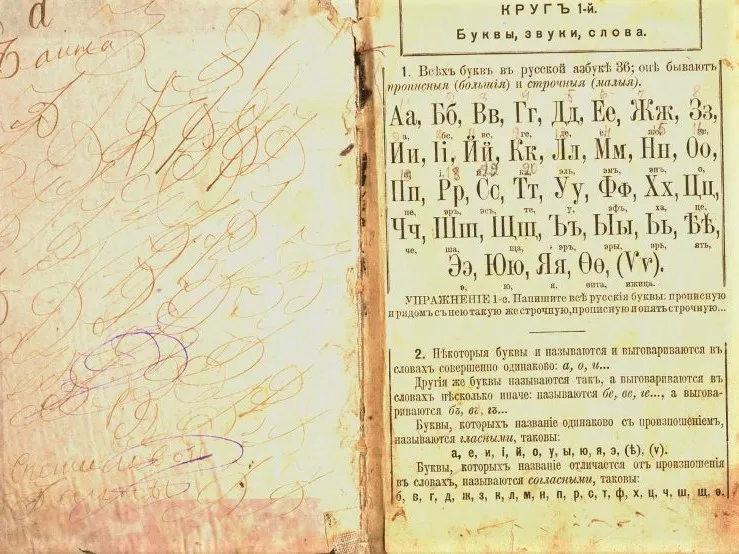 КРУГЪ 1-й.
Буквы, звуки, слова.
1. Всѣхъ буквъ въ русской азбукѣ 36; онѣ бываютъ
прописныя (большія) и строчныя (малыя).
Аа, Бб, Вв, Гг, Дд, Ее, Жж, Зз,
а, бе, ве, ге, де, е, же, зе,
Ии, Іі, Йй, Кк, Лл, Мм, Нн, Оо,
ка, эль, эмъ, энъ, о,
Пп, Рр, Сс, Тт, Уу, Фф, Хх, Цц,
пе, эръ, эсъ, те, у, эфъ, ха, це,
Чч, Шш, Щщ, Ъъ, Ыы, Ьь, Ѣѣ,
че, ша, ща, эръ, эры, эрь, ять,
Ээ, Юю, Яя, Ѳѳ, (Ѵѵ).
э, ю, я, ѳита, ижица.
УПРАЖНЕНІЕ 1-е. Напишите всѣ русскія буквы: прописную
и рядомъ съ нею такую же строчную, прописную и опять строчную...
2. Нѣкоторыя буквы и называются и выговариваются въ
словахъ совершенно одинаково: а, о, и...
Другія же буквы называются такъ, а выговариваются въ
словахъ нѣсколько иначе: называются бе, ве, ге..., а выгова-
риваются бъ, въ, гъ...
Буквы, которыхъ названіе одинаково съ произношеніемъ,
называются гласными, таковы:
а, е, и, і, й, о, у, ы, ю, я, э, (ѣ), (ѵ).
Буквы, которыхъ названіе отличается отъ произношенія
въ словахъ, называются согласными, таковы:
б, в, г, д, ж, з, к, л, м, н, п, р, с, т, ф, х, ц, ч, ш, щ, ѳ.